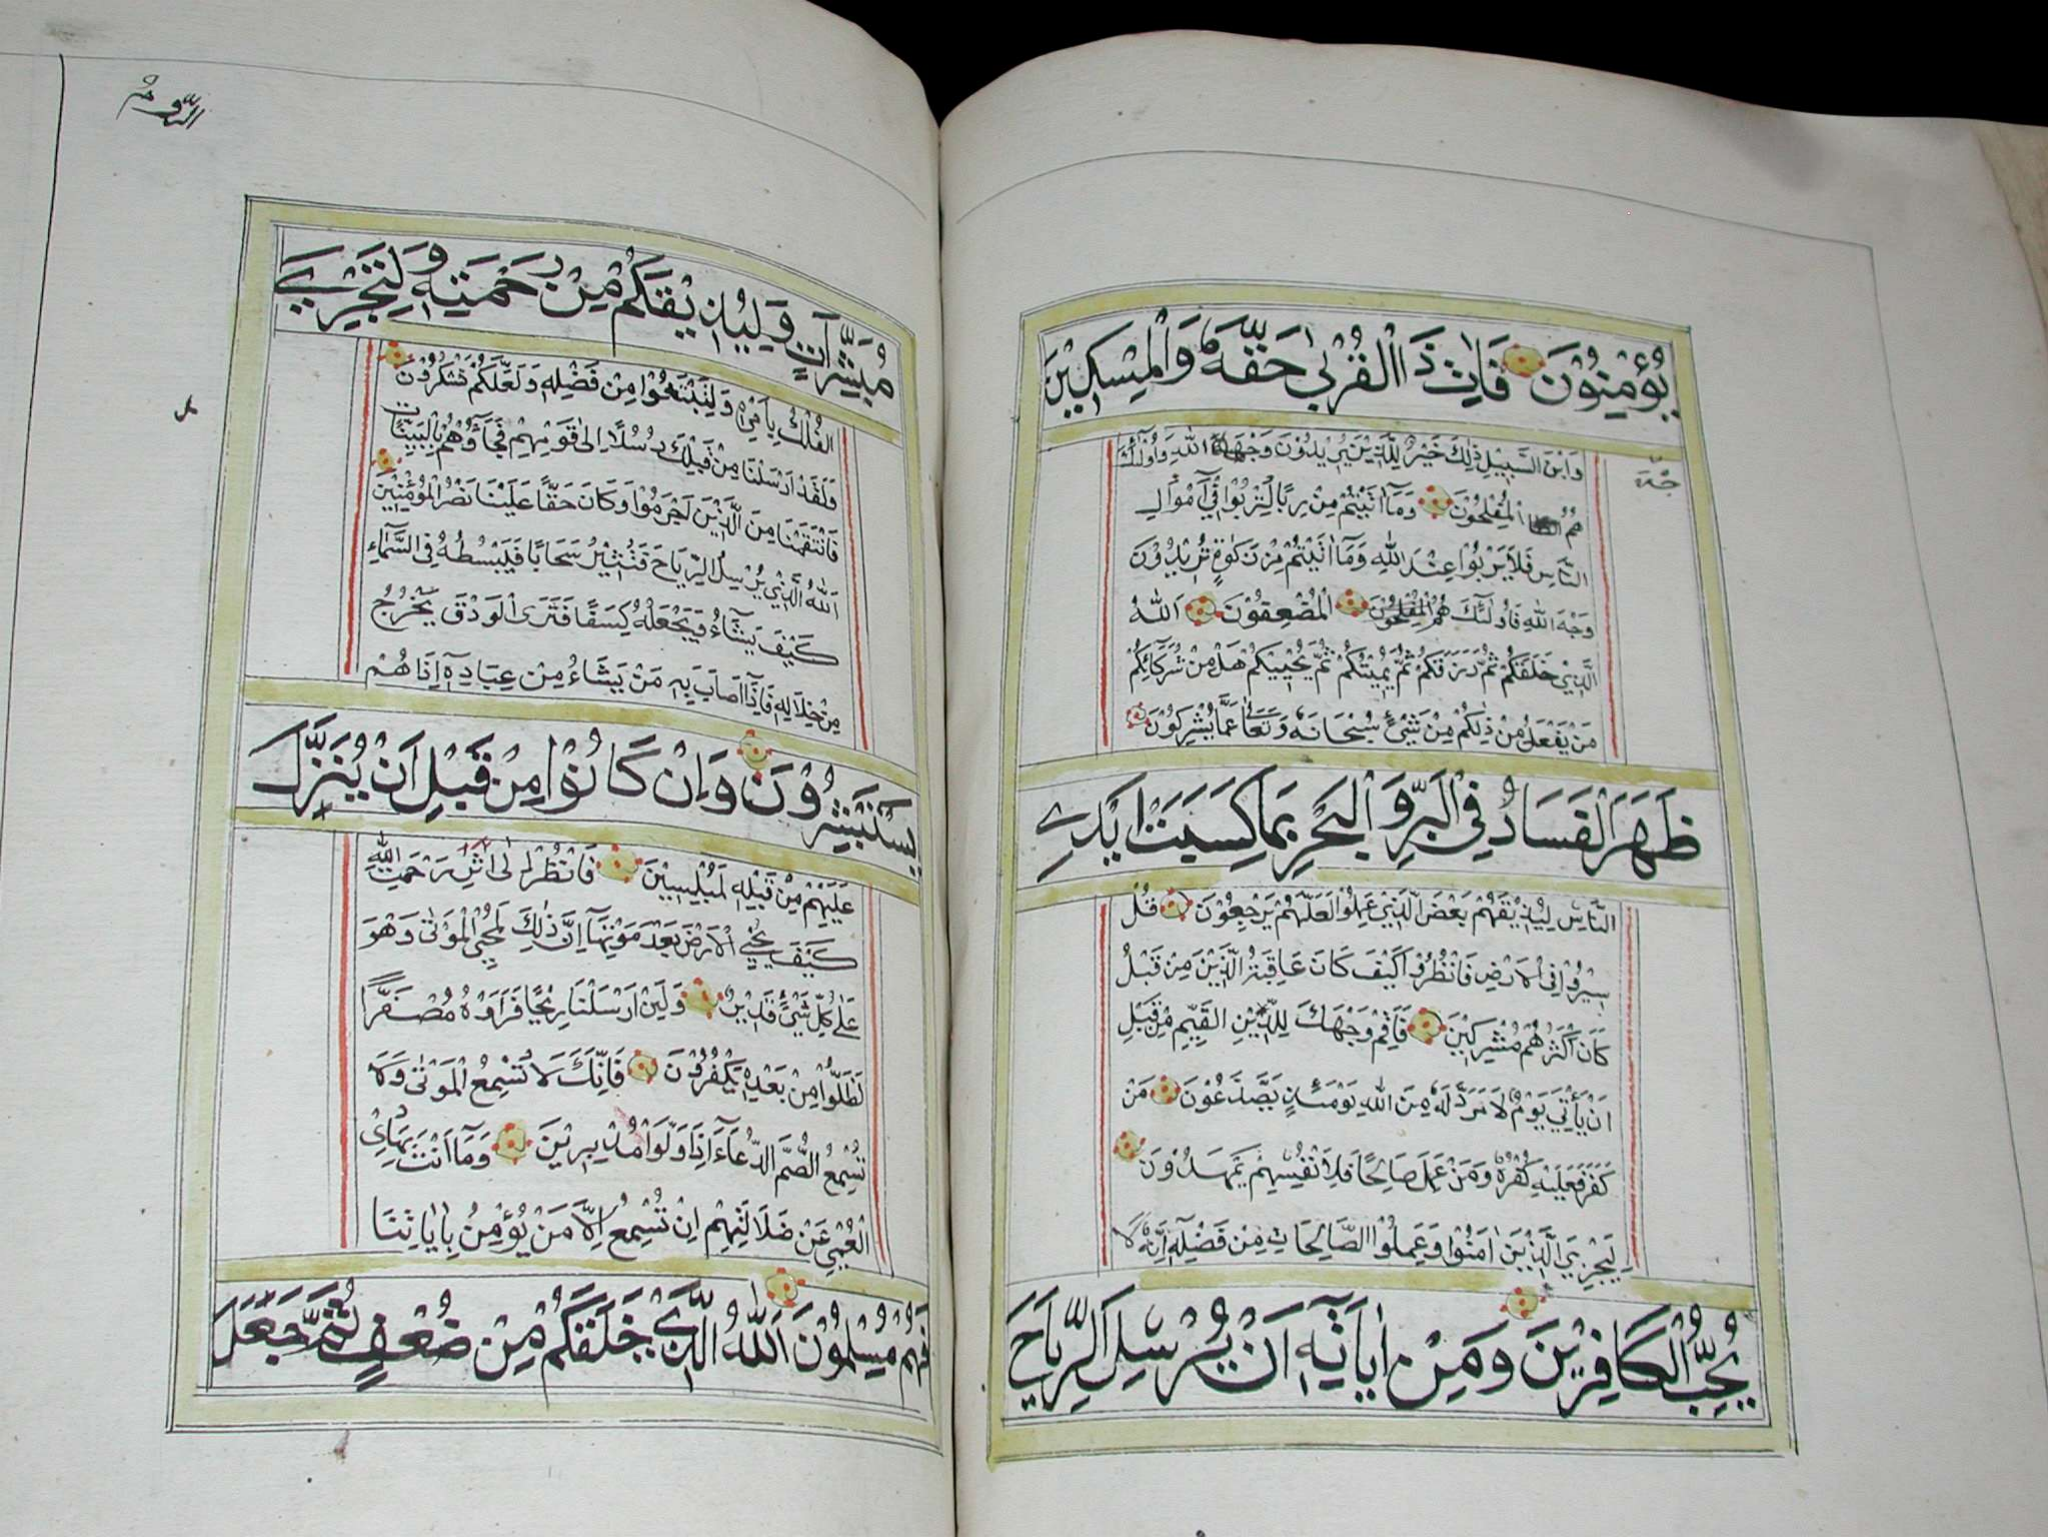 يُؤْمِنُوْنَ فَاٰتِ ذَا الْقُرْبٰى حَقَّهٗ وَالْمِسْكِيْنَ
وَابْنَ السَّبِيْلِ ذٰلِكَ خَيْرٌ لِلَّذِيْنَ يُرِيْدُوْنَ وَجْهَ اللّٰهِ وَاُولٰئِكَ
هُمُ الْمُفْلِحُوْنَ وَمَا اٰتَيْتُمْ مِنْ رِبًا لِتَرْبُوَا فِيْ اَمْوَالِ
النَّاسِ فَلَا يَرْبُوا عِنْدَ اللّٰهِ وَمَا اٰتَيْتُمْ مِنْ زَكٰوةٍ تُرِيْدُوْنَ
وَجْهَ اللّٰهِ فَاُولٰئِكَ هُمُ الْمُفْلِحُوْنَ الْمُضْعِفُوْنَ اَللّٰهُ
الَّذِيْ خَلَقَكُمْ ثُمَّ رَزَقَكُمْ ثُمَّ يُمِيْتُكُمْ ثُمَّ يُحْيِيْكُمْ هَلْ مِنْ شُرَكَائِكُمْ
مَنْ يَفْعَلُ مِنْ ذٰلِكُمْ مِنْ شَيْءٍ سُبْحَانَهٗ وَتَعَالٰى عَمَّا يُشْرِكُوْنَ
ظَهَرَ الْفَسَادُ فِي الْبَرِّ وَالْبَحْرِ بِمَا كَسَبَتْ اَيْدِي
النَّاسِ لِيُذِيْقَهُمْ بَعْضَ الَّذِيْ عَمِلُوْا لَعَلَّهُمْ يَرْجِعُوْنَ قُلْ
سِيْرُوْا فِي الْاَرْضِ فَانْظُرُوْا كَيْفَ كَانَ عَاقِبَةُ الَّذِيْنَ مِنْ قَبْلُ
كَانَ اَكْثَرُهُمْ مُشْرِكِيْنَ فَاَقِمْ وَجْهَكَ لِلدِّيْنِ الْقَيِّمِ مِنْ قَبْلِ
اَنْ يَأْتِيَ يَوْمٌ لَا مَرَدَّ لَهٗ مِنَ اللّٰهِ يَوْمَئِذٍ يَصَّدَّعُوْنَ مَنْ
كَفَرَ فَعَلَيْهِ كُفْرُهٗ وَمَنْ عَمِلَ صَالِحًا فَلِاَنْفُسِهِمْ يَمْهَدُوْنَ
لِيَجْزِيَ الَّذِيْنَ اٰمَنُوْا وَعَمِلُوا الصَّالِحَاتِ مِنْ فَضْلِهٖ اِنَّهٗ لَا
يُحِبُّ الْكَافِرِيْنَ وَمِنْ اٰيَاتِهٖ اَنْ يُرْسِلَ الرِّيَاحَ
الرُّوم
مُبَشِّرَاتٍ وَلِيُذِيْقَكُمْ مِنْ رَحْمَتِهٖ وَلِتَجْرِيَ
الْفُلْكُ بِاَمْرِهٖ وَلِتَبْتَغُوْا مِنْ فَضْلِهٖ وَلَعَلَّكُمْ تَشْكُرُوْنَ
وَلَقَدْ اَرْسَلْنَا مِنْ قَبْلِكَ رُسُلًا اِلٰى قَوْمِهِمْ فَجَاؤُهُمْ بِالْبَيِّنَاتِ
فَانْتَقَمْنَا مِنَ الَّذِيْنَ اَجْرَمُوْا وَكَانَ حَقًّا عَلَيْنَا نَصْرُ الْمُؤْمِنِيْنَ
اَللّٰهُ الَّذِيْ يُرْسِلُ الرِّيَاحَ فَتُثِيْرُ سَحَابًا فَيَبْسُطُهٗ فِي السَّمَاءِ
كَيْفَ يَشَاءُ وَيَجْعَلُهٗ كِسَفًا فَتَرَى الْوَدْقَ يَخْرُجُ
مِنْ خِلَالِهٖ فَاِذَا اَصَابَ بِهٖ مَنْ يَشَاءُ مِنْ عِبَادِهٖ اِذَا هُمْ
يَسْتَبْشِرُوْنَ وَاِنْ كَانُوْا مِنْ قَبْلِ اَنْ يُنَزَّلَ
عَلَيْهِمْ مِنْ قَبْلِهٖ لَمُبْلِسِيْنَ فَانْظُرْ اِلٰى اٰثٰرِ رَحْمَتِ اللّٰهِ
كَيْفَ يُحْيِي الْاَرْضَ بَعْدَ مَوْتِهَا اِنَّ ذٰلِكَ لَمُحْيِ الْمَوْتٰى وَهُوَ
عَلٰى كُلِّ شَيْءٍ قَدِيْرٌ وَلَئِنْ اَرْسَلْنَا رِيْحًا فَرَاَوْهُ مُصْفَرًّا
لَظَلُّوْا مِنْ بَعْدِهٖ يَكْفُرُوْنَ فَاِنَّكَ لَا تُسْمِعُ الْمَوْتٰى وَلَا
تُسْمِعُ الصُّمَّ الدُّعَاءَ اِذَا وَلَّوْا مُدْبِرِيْنَ وَمَا اَنْتَ بِهَادِي
الْعُمْيِ عَنْ ضَلَالَتِهِمْ اِنْ تُسْمِعُ اِلَّا مَنْ يُؤْمِنُ بِاٰيَاتِنَا
فَهُمْ مُسْلِمُوْنَ اَللّٰهُ الَّذِيْ خَلَقَكُمْ مِنْ ضُعْفٍ ثُمَّ جَعَلَ